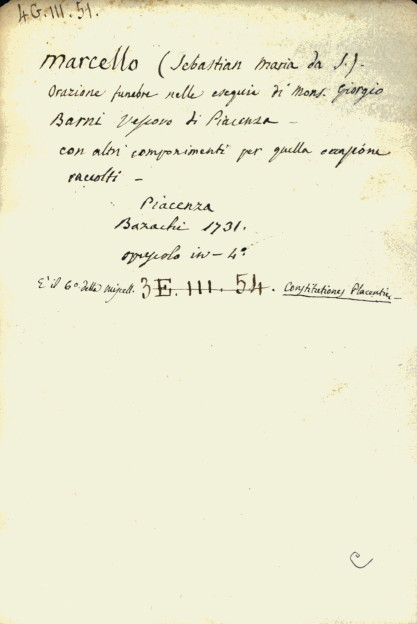 4G.III.51.
Marcello (Sebastian Maria da S.).
Orazione funebre nelle esequie di Mons. Giorgio
Barni Vescovo di Piacenza -
con altri componimenti per quella occasione
raccolti -
Piacenza
Bazachi 1731.
opuscolo in-4º
È il 6º delle miscell. 3E.III.54. Constitutiones Placentin